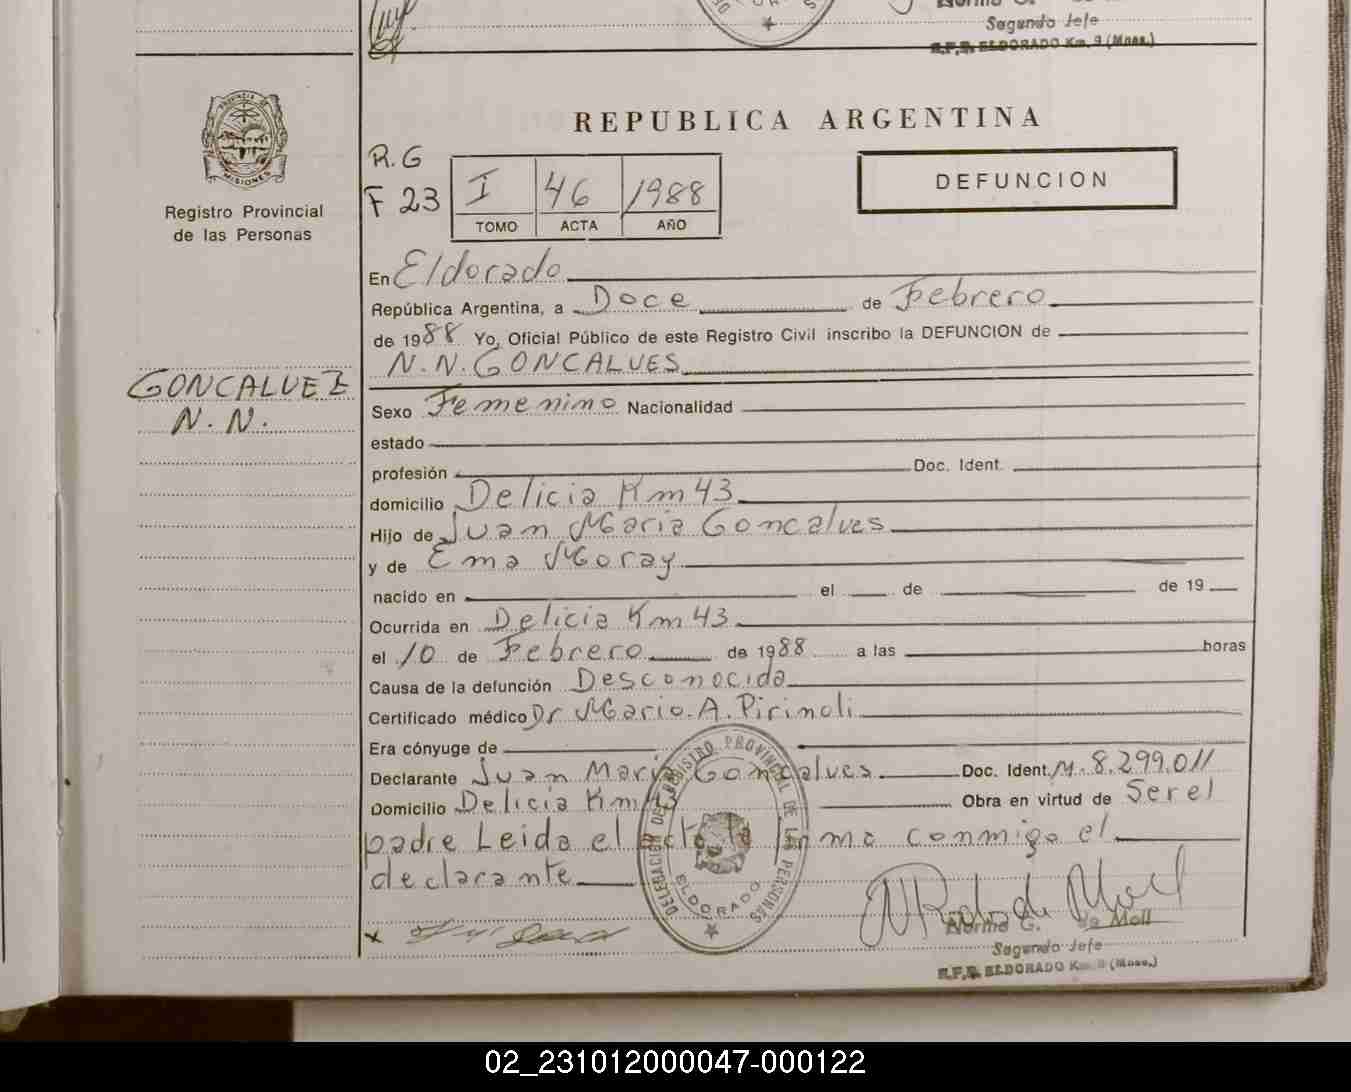 Segundo Jefe
R.P.P. ELDORADO Km. 9 (Mnes.)
PROVINCIA DE
MISIONES
Registro Provincial
de las Personas
REPUBLICA ARGENTINA
R.G
F 23
I 46 1988
TOMO ACTA AÑO
DEFUNCION
En Eldorado
República Argentina, a Doce de Febrero
de 1988 Yo, Oficial Público de este Registro Civil inscribo la DEFUNCION de
N.N. GONCALVES
GONCALVEZ
N.N.
Sexo Femenino Nacionalidad
estado
profesión Doc. Ident.
domicilio Delicia Km 43
Hijo de Juan Maria Goncalves
y de Ema Moray
nacido en el de de 19
Ocurrida en Delicia Km 43
el 10 de Febrero de 1988 a las horas
Causa de la defunción Desconocida
Certificado médico Dr Mario. A. Pirinoli
Era cónyuge de
Declarante Juan Maria Goncalves Doc. Ident. M. 8.299.011
Domicilio Delicia Km 43 Obra en virtud de Ser el
padre Leida el acta la firma conmigo el
declarante
DELEGACION DEL REGISTRO PROVINCIAL DE LAS PERSONAS
ELDORADO
Norma G. de Moll
Segundo Jefe
R.P.P. ELDORADO Km. 9 (Mnes.)
02_231012000047-000122